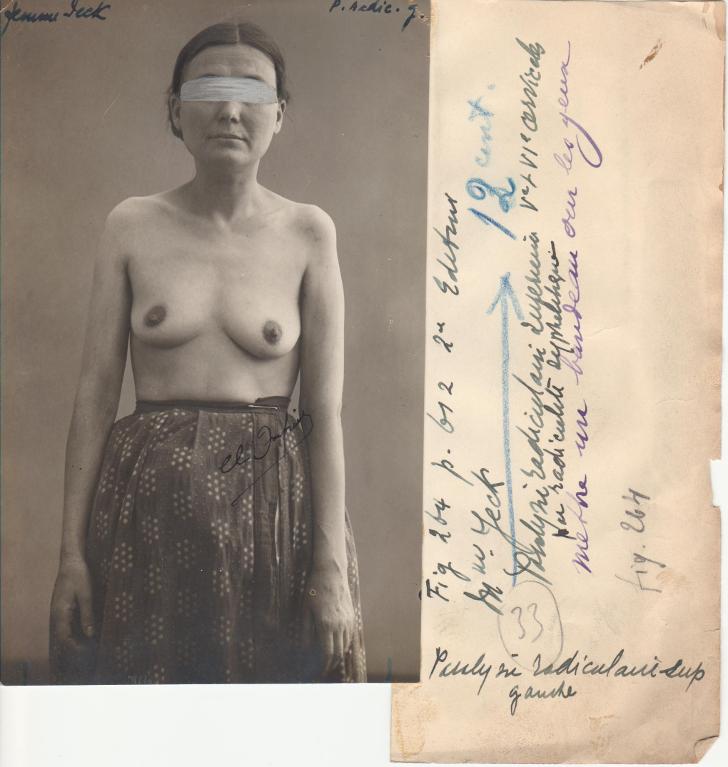 femme Jeck
P. radic. g.
Fig 264 p. 612 2e Edition
Mme Jeck
12 cent.
Paralysie radiculaire supérieure Ve + VIe cervicales
par radiculite syphilitique
mettre un bandeau sur les yeux
33
fig. 264
Paralysie radiculaire sup
gauche